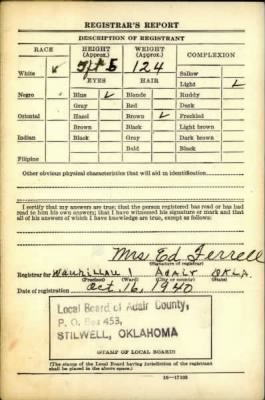 REGISTRAR'S REPORT
DESCRIPTION OF REGISTRANT
RACE HEIGHT (Approx.) WEIGHT (Approx.) COMPLEXION
White ✓ 5 ft 5 124 Sallow
EYES HAIR Light ✓
Negro Blue ✓ Blonde Ruddy
Gray Red Dark
Oriental Hazel Brown ✓ Freckled
Brown Black Light brown
Indian Black Gray Dark brown
Bald Black
Filipino
Other obvious physical characteristics that will aid in identification
I certify that my answers are true; that the person registered has read or has
had read to him his own answers; that I have witnessed his signature or mark and that
all of his answers of which I have knowledge are true, except as follows:
Mrs Ed Ferrell
(Signature of registrar)
Registrar for Wauhillau 1 Adair OKLA.
(Precinct) (Ward) (City or county) (State)
Date of registration Oct. 16, 1940
Local Board of Adair County,
P. O. Box 453,
STILWELL, OKLAHOMA
(STAMP OF LOCAL BOARD)
(The stamp of the Local Board having jurisdiction of the registrant
shall be placed in the above space.)
16—17105